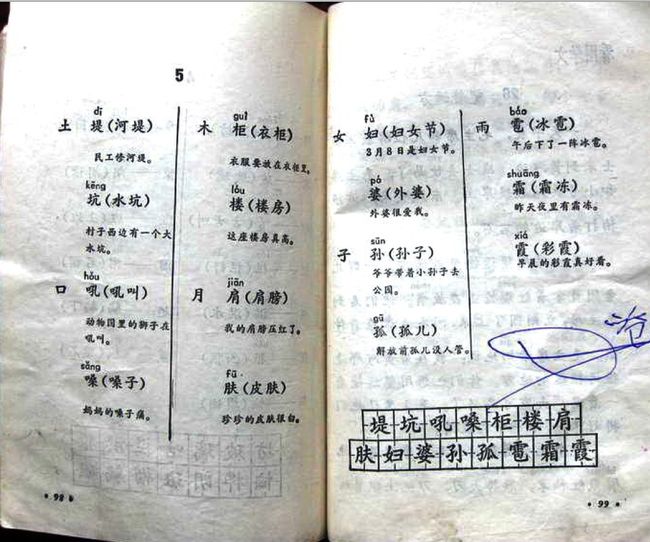 5
dī
土 堤(河堤)
民工修河堤。
kēng
坑(水坑)
村子西边有一个大
水坑。
hǒu
口 吼(吼叫)
动物园里的狮子在
吼叫。
sǎng
嗓(嗓子)
妈妈的嗓子痛。
guì
木 柜(衣柜)
衣服要放在衣柜里。
lóu
楼(楼房)
这座楼房真高。
jiān
月 肩(肩膀)
我的肩膀压红了。
fū
肤(皮肤)
珍珍的皮肤很白。
• 98 •
fù
女 妇(妇女节)
3月8日是妇女节。
pó
婆(外婆)
外婆很爱我。
sūn
子 孙(孙子)
爷爷带着小孙子去
公园。
gū
孤(孤儿)
解放前孤儿没人管。
báo
雨 雹(冰雹)
午后下了一阵冰雹。
shuāng
霜(霜冻)
昨天夜里有霜冻。
xiá
霞(彩霞)
早晨的彩霞真好看。
堤坑吼嗓柜楼肩
肤妇婆孙孤雹霜霞
• 99 •